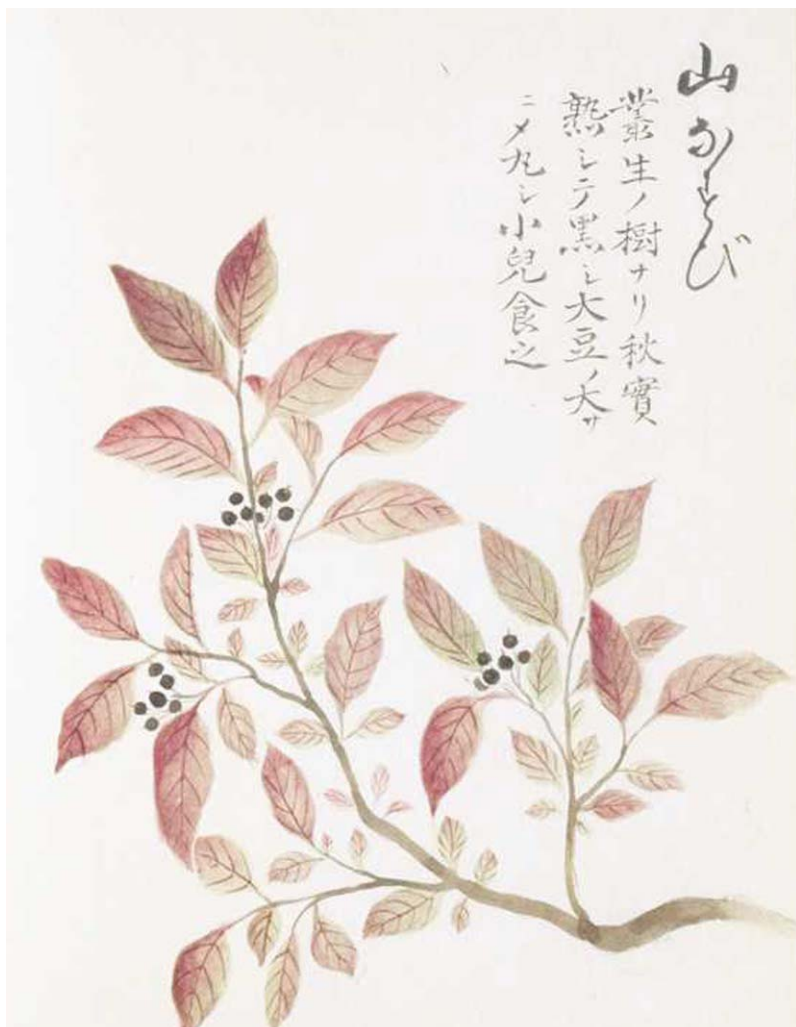 山なすび
叢生ノ樹ナリ秋實
熟シテ黒シ大豆ノ大サ
ニメ丸シ小兒食之